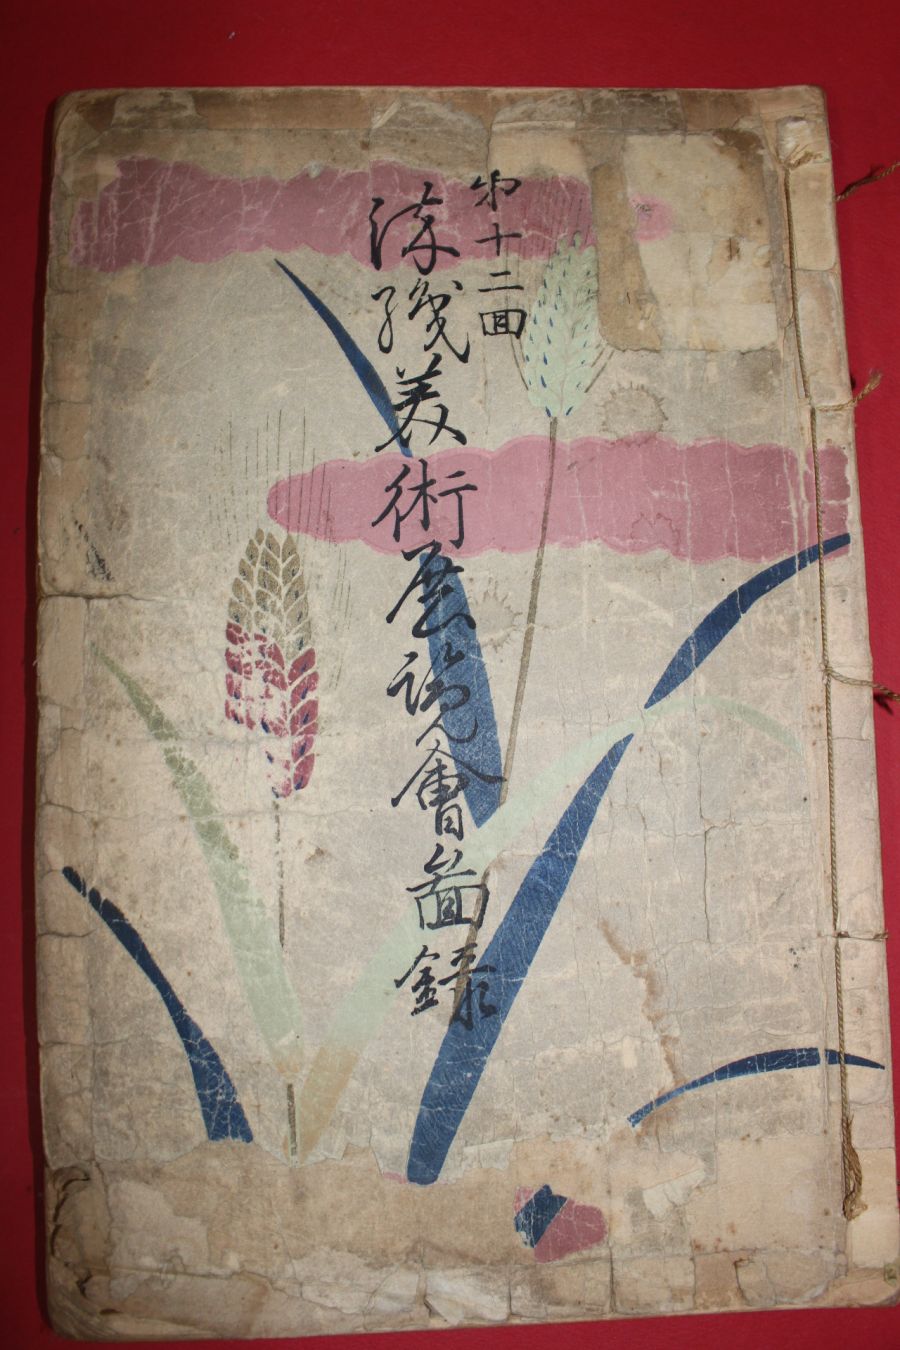 第十二回
染織美術展覧會圖録